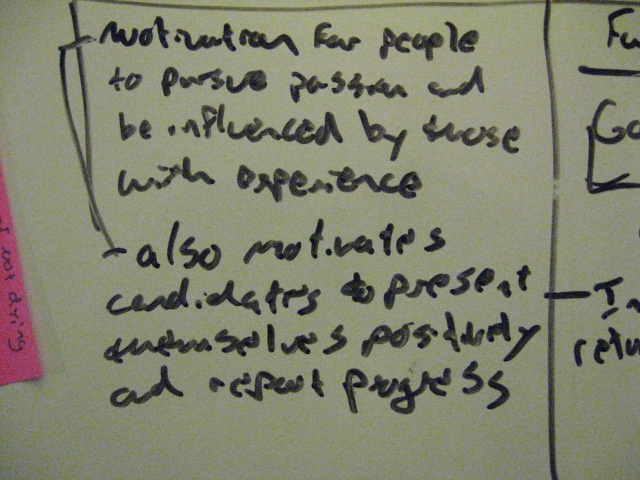 - motivation for people
to pursue passion and
be influenced by those
with experience
- also motivates
candidates to present
themselves positively
and report progress
Fu
Go
- In
retu
not dying